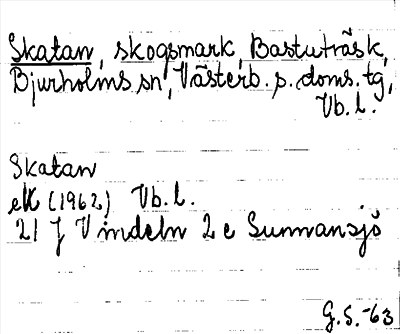 Skatan, skogsmark, Bastuträsk,
Bjurholms sn, Västerb. s. doms. tg,
Vb. l.
Skatan
ek (1962) Vb. l.
21 J Vindeln 2 e Sunnansjö
G. S. -63